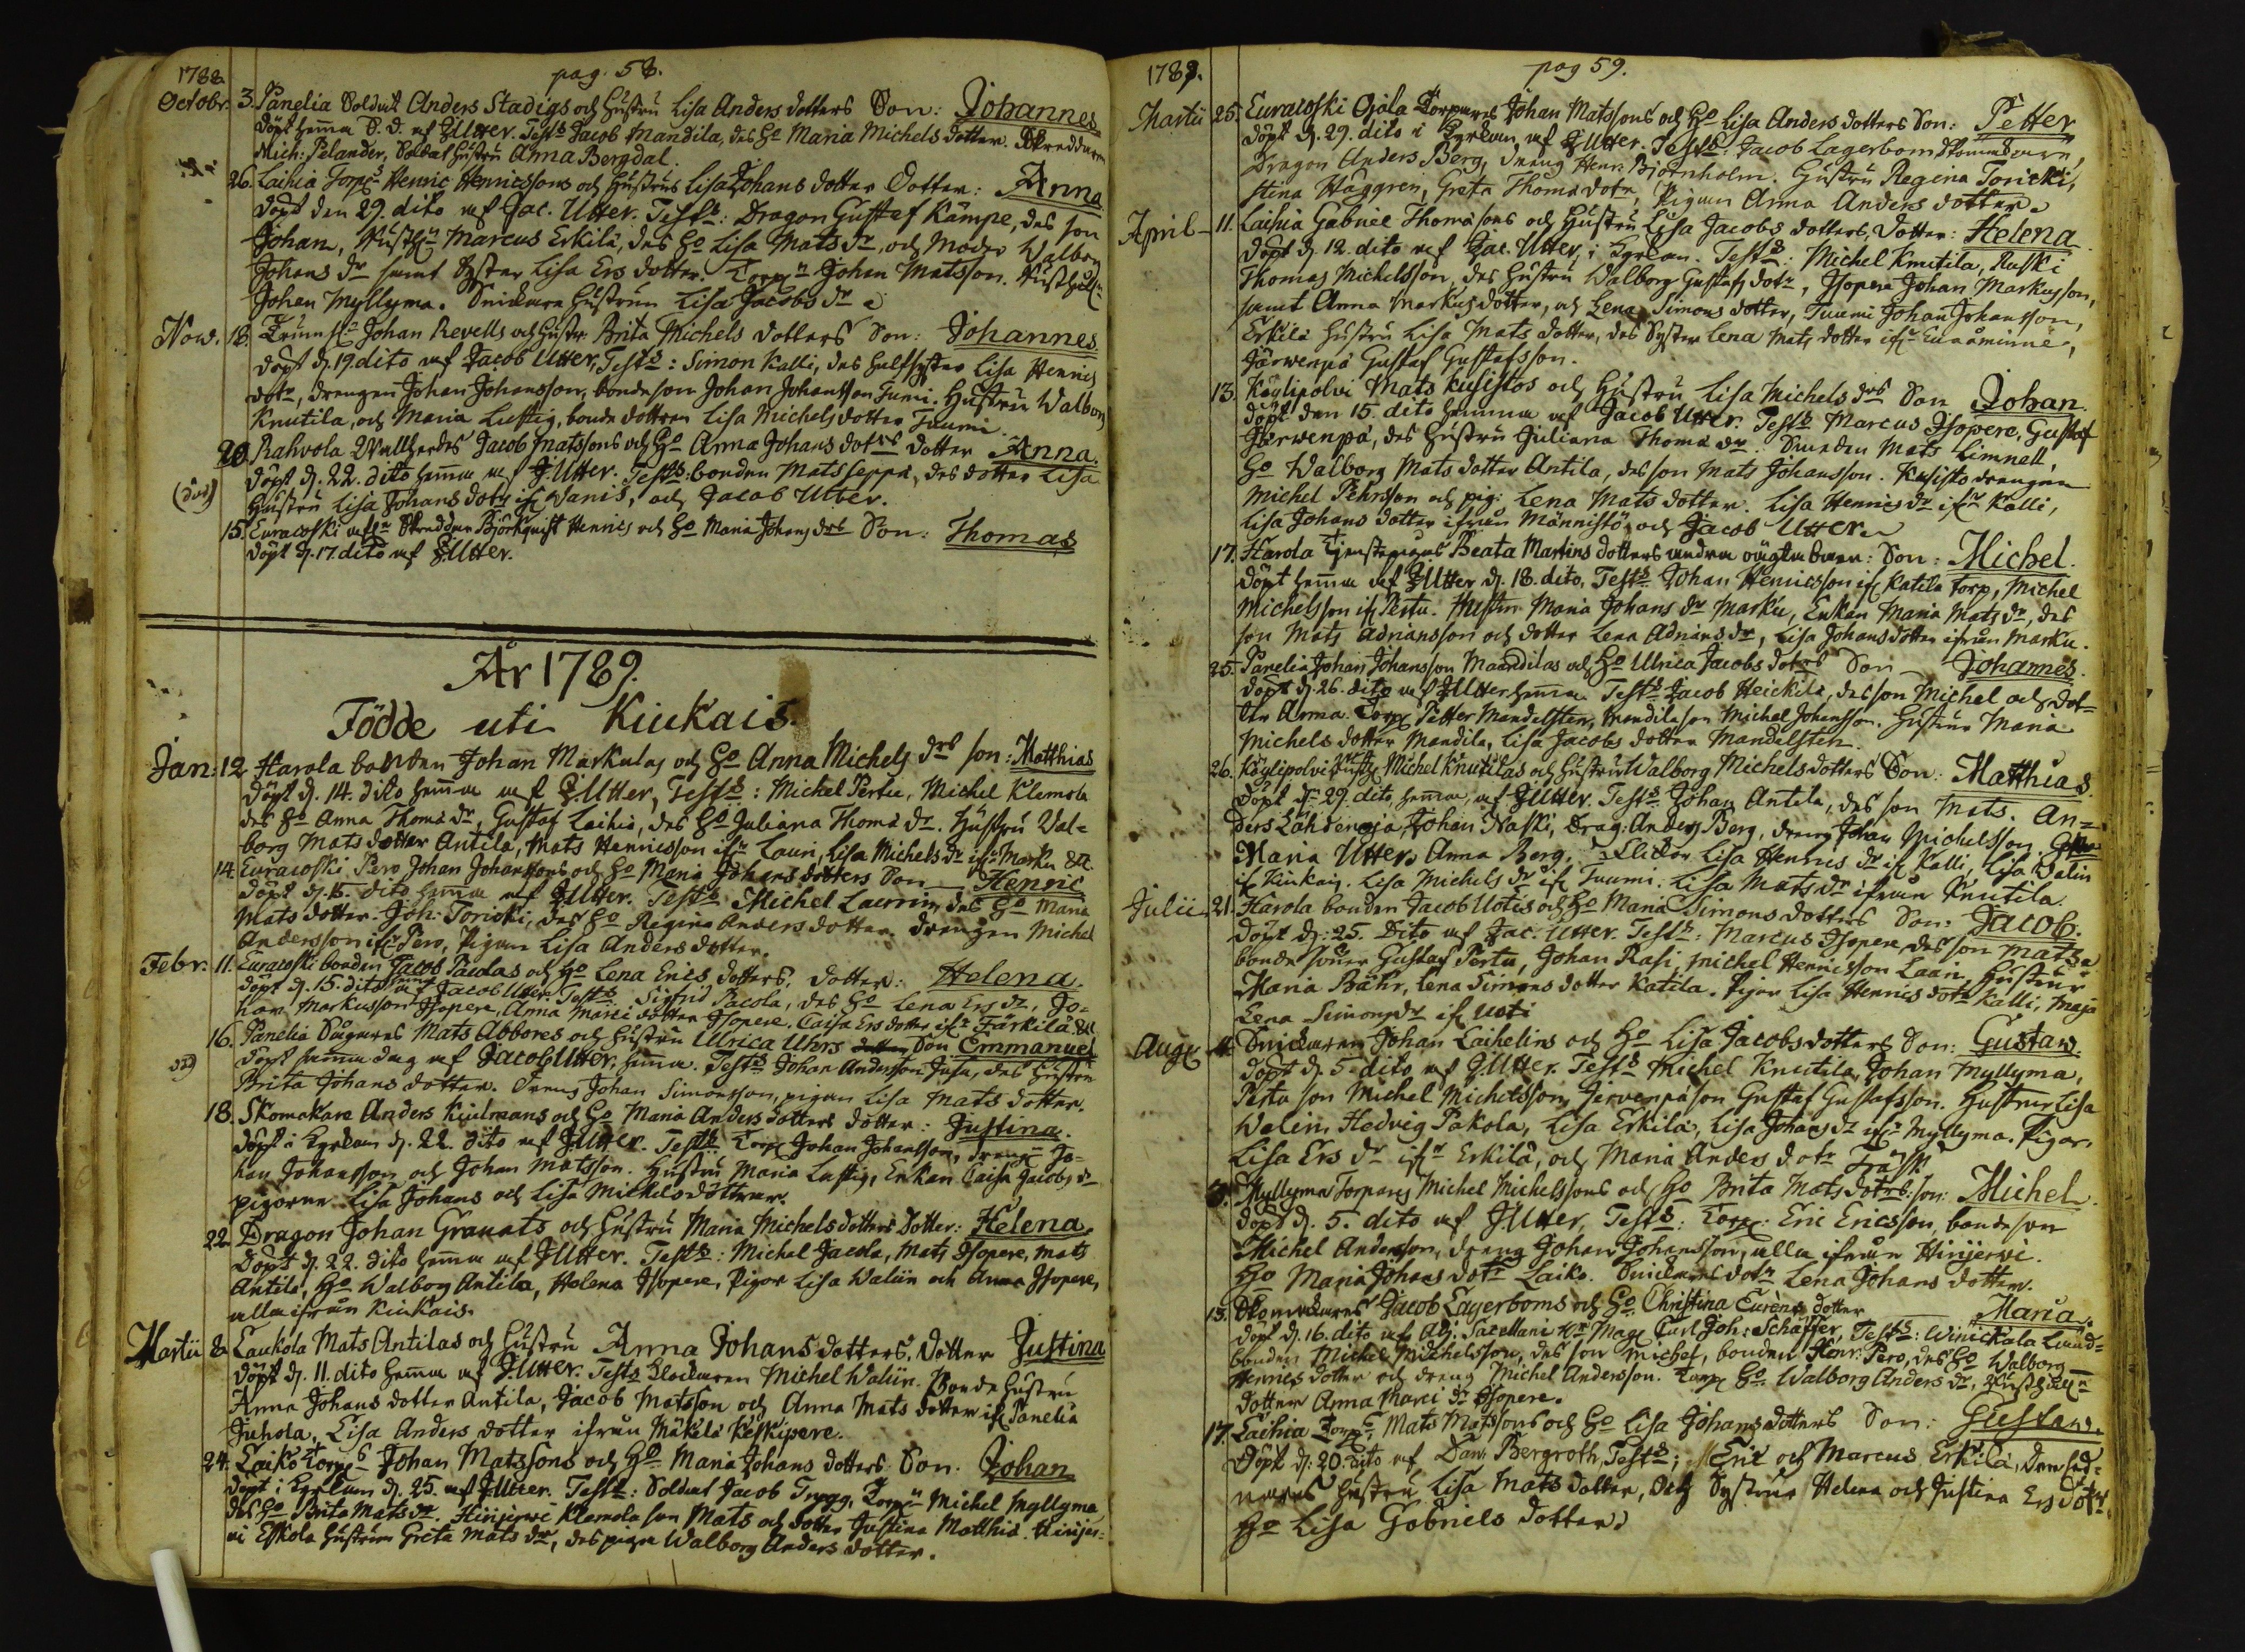 1788. pag. 58.
Octobr. 3. Panelia Soldat Anders Stadigs och Hustru Lisa Anders dotters Son: Johannes
döpt hema S. D. af J Utter. Test: Jacob Mandila, des Ho Maria Michels dotter. Skreddaren
Mich: Pelander, Soldat Hustru Anna Bergdal.
26. Laihia Torps Henric Henricssons och Hustrus Lisa Johans dotter Dotter: Anna
döpt den 29. dito af Jac. Utter. Test: Dragon Gustaf Kämpe, des son
Johan, Rusth Marcus Erkilä, des Ho Lisa Mats dr, och Moder Walborg
Johans dr samt Syster Lisa Ers dotter. Torpn Johan Matsson. Rusthåll
Johan Myllyma. Snickare Hustrun Lisa Jacobs dr
Nov. 18. Johan Revells och Hustr Brita Michels dotters Son: Johannes
döpt d. 19 dito af Jacob Utter, Test: Simon Kalli, des halfsyster Lisa Henrics
dotr, drengen Johan Johansson, bondeson Johan Johansson Tumi. Hustru Walborg
Knutila, och Maria Lustig, bonde dottren Lisa Michels dotter Tuumi.
20. Rahvola Wallherdes Jacob Matssons och Ho Anna Johans dotrs dotter Anna.
döpt d. 22. dito hema af J. Utter. Test: bonden Mats Seppä, des dotter Lisa
(död) Hustru Lisa Johans dotr if Wanis, och Jacob Utter.
15. Euracoski Skreddar Björkquist Henrics och Ho Maria Johans drs Son: Thomas
döpt d. 17. dito af J. Utter.
År 1789.
Födde uti Kiukais.
Jan: 12 Harola bonden Johan Markulas och Ho Anna Michels drs son: Matthias
döpt d. 14. dito hema af J Utter, Test: Michel Pertu, Michel Klemola
des Ho Anna Thomæ dr, Gustaf Laihia, des Ho Juliana Thomæ dr. Hustru Val-
borg Mats dotter Antila, Mats Henricsson ifr Lauri, Lisa Michels dr ifr Marku
14. Euracoski Pero Johan Johanssons och Ho Maria Johans dotters Son Henric
döpt d. 15. dito hema af J Utter. Test: Michel Laurin, des Ho Maria
Mats dotter. Joh: Toriski, des Ho Regina Anders dotter. drengen Michel
Andersson ifr Pero, Pigan Lisa Anders dotter.
Febr: 11. Euracoski bonden Jacob Pacolas och Ho Lena Erics dotters, dotter: Helena.
döpt d. 15. dito af Jacob Utter Test: Sigfrid Pacola, des Ho Lena Ers dr, Jo-
han Markusson Isopere, Anna Marci dotter Isopere. Caisa Ers dotter ifr Färkilä
16. Panelia Sågares Mats Abbores och Hustru Ulrica Uhrs Son Emmanuel
död döpt samma dag af Jacob Utter, hema. Test: Johan Andersson Juse, des Hustru
Brita Johans dotter. Dreng Johan Simonsson, pigan Lisa Mats dotter.
18. Skomakare Anders Kiulmans och Ho Maria Anders dotters dotter: Justina.
döpt i Kyrkan d. 22. dito af J. Utter. Test: Torp Johan Johansson, dreng Jo-
han Johansson och Johan Matsson. Hustru Maria Lustig, Enkan Caisa Jacobs dr
pigorne Lisa Johans och Lisa Michels döttrar.
22. Dragon Johan Granats och Hustru Maria Michels dotters Dotter: Helena.
döpt d. 22. dito hema af J Utter. Test: Michel Jacola, Mats Isopere, Mats
Antila, Ho Walborg Antila, Helena Isopere, Pigor Lisa Waliin och Anna Isopere,
alla ifrån Kiukais.
Martii 8. Laukola Mats Antilas och Hustru Anna Johans dotters, dotter Justina
döpt d. 11. dito hema af J. Utter. Test: Klockaren Michel Waliin. Bonde Hustru
Anna Johans dotter Antila, Jacob Matsson och Anna Mats dotter if Panelia
Juhola, Lisa Anders dotter ifrån Mäkilä Keskipere.
24. Laiko Torps Johan Matssons och Ho Maria Johans dotters Son. Johan
döpt i Kyrkan d. 25. af J Utter. Test: Soldat Jacob Trygg, Torp Michel Myllyma
des Ho Brita Mats dr. Hinjerwi Klemola son Mats och dotter Justina Matthiæ. Hinjer-
wi Eskola hustrun Greta Mats dr, des piga Walborg Anders dotter.
1789. pag 59.
Martii 25. Euracoski Ojala Torpares Johan Matssons och Ho Lisa Anders dotters Son: Petter
döpt d. 29. dito i Kyrkan af J Utter. Test: Jacob Lagerbom Skomakare,
Dragon Anders Berg, Dreng Henr. Björnholm. Hustru Regina Toricki,
Stina Häggren, Greta Thomæ dotr, Pigan Anna Anders dotter.
April 11. Laihia Gabriel Thomæsons och Hustru Lisa Jacobs dotters, Dotter: Helena
döpt d. 12. dito af Jac. Utter, i Kyrkan. Test: Michel Knutila, Raski
Thomas Michelsson, des Hustru Walborg Gustafs dotr, Isopere Johan Markusson,
samt Anna Markus dotter, och Lena Simons dotter, Tuumi Johan Johansson,
Erkilä Hustru Lisa Mats dotter, des Syster Lena Mats dotter ifr Euraminne,
Järwenpä Gustaf Gustafsson.
13. Köylipolvi Mats Kusistos och Hustru Lisa Michels drs Son Johan.
döpt den 15. dito hemma af Jacob Utter. Test: Marcus Isopere, Gustaf
Jerwenpä, des Hustru Juliana Thomæ dr. Smeden Mats Limnell,
Ho Walborg Mats dotter Antila, des son Mats Johansson. Kusisto drengen
Michel Pehrsson och pig: Lena Mats dotter. Lisa Henrics dr ifr Kalli,
Lisa Johans dotter ifrån Männistö och Jacob Utter.
17. Harola Tjenstepigas Beata Martins dotters andra oägta barn: Son: Michel.
döpt hema af J Utter d. 18. dito, Test: Johan Henricsson if Katila Torp, Michel
Michelsson if Pertu. Hustru Maria Johans dr Marku, Enkan Maria Mats dr, des
son Mats Adriansson och dotter Lena Adrians dr, Lisa Johans dotter ifrån Marku.
25. Panelia Johan Johansson Maandilas och Ho Ulrica Jacobs dotrs Son Johannes.
döpt d. 26. dito af J Utter hema. Test: Jacob Heickilä, des son Michel och dot-
ter Anna. Torp Petter Mandelsten, Mandila son Michel Johansson. Hustrur Maria
Michels dotter Mandila, Lisa Jacobs dotter Mandelsten.
26. Köylipolvi Michel Knutilas och Hustru Walborg Michels dotters Son: Matthias.
döpt d. 29. dito, hema, af J Utter. Test: Johan Antila, des son Mats. An-
ders Lähdenoja, Johan Naski, Drag. Anders Berg, dreng Johan Michelsson.
Maria Utter, Anna Berg. Flickor Lisa Henrics dr if Kalli, Lisa Walin
if Kiukais. Lisa Michels dr if Tuumi: Lisa Mats dr ifrån Knutila.
Julii 21. Harola bonden Jacob Uotis och Ho Maria Simons dotters Son: Jacob.
döpt d: 25. Dito af Jac. Utter. Test: Marcus Isopere, des son Mats.
bondesöner Gustaf Pertu, Johan Rasi, Michel Henricsson Lauri, Hustrur
Maria Bähr, Lena Simons dotter Katila. Pigor Lisa Henrics dotr Kalli, Maja
Lena Simons dr if Uoti
Aug 4. Snickaren Johan Laihelins och Ho Lisa Jacobs dotters Son: Gustaw.
döpt d. 5. dito af J Utter. Test: Michel Knutila, Johan Myllyma,
Pertu son Michel Michelsson, Jervenpä son Gustaf Gustafsson. Hustrur Lisa
Walin, Hedvig Pakola, Lisa Erkilä, Lisa Johans dr ifr Myllyma. Pigor,
Lisa Ers dr ifr Erkilä, och Maria Anders dotr Träsk.
3. Myllyma Torpares Michel Michelssons och Ho Brita Mats dotrs: son: Michel.
döpt d. 5. dito af J Utter, Test: Torp: Eric Ericsson, bondeson
Michel Andersson, dreng Johan Johansson, alla ifrån Hinjerwi.
Ho Maria Johans dotr Laiko. Snickares dotr Lena Johans dotter.
13. Skomakares Jacob Lagerboms och Ho Christina Eurens dotter Maria.
döpt d. 16. dito af Adj. Sacellani Hr Mag Carl Joh: Schäffer, Test: Winickala Länd-
bonden Michel Michelsson, des son Michel, bonden Henr: Pero, des Ho Walborg
Henrics dotter och dreng Michel Andersson. Torp Ho Walborg Anders dr, Rusthåll
dotter Anna Marci dr Isopere.
17. Laihia Torps Mats Matssons och Ho Lisa Johans dotters Son: Gustaw.
Döpt d: 20. dito af Dan. Bergroth, Test: Eric och Marcus Erkilä, den sed-
nares Hustru Lisa Mats dotter, och Systrar Helena och Justina Ers dotr.
Ho Lisa Gabriels dotter.